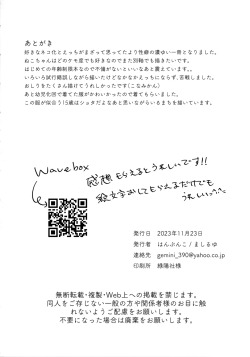 あとがき
好きなネコ化とえっちがまざって思ってたより性癖の濃ゆい一冊となりました。
ぬこちゃんはどのケモ度でも好きなのでまた別軸でも描きたいです。
はじめての年齢制限本なので不備がないといいなあと震えています。。
いろいろ試行錯誤しながら描いたけどなかなかえっちにならず、苦戦しました。
おしりをたくさん描けてうれしかったです(こなみかん)
あと幼児化回で着てた服がかわいかったので着てもらいました。
この服が似合う15歳はショタだよなあと思いながらいるまち描いています。
Wavebox
感想もらえるとうれしいです!!
絵文字おしてもらえるだけでも
うれしい
発行日 2023年11月23日
発行者 はんぶんこ / ましるゆ
連絡先 gemini_390@yahoo.co.jp
印刷所 緑陽社様
無断転載・複製・Web上への掲載を禁じます。
同人をご存じない一般の方や関係者様のお目に触
れないようご配慮をお願いします。
不要になった場合は廃棄をお願いします。